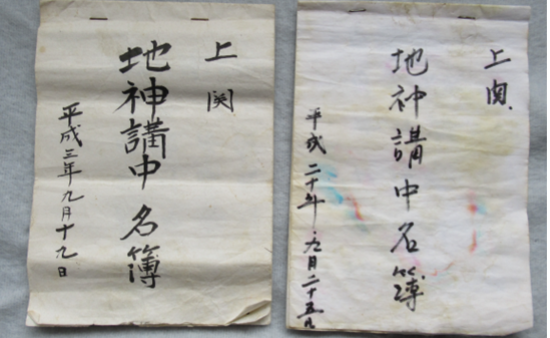 上関
地神講中名簿
平成三年九月十九日
上関
地神講中名簿
平成二十年九月二十五日